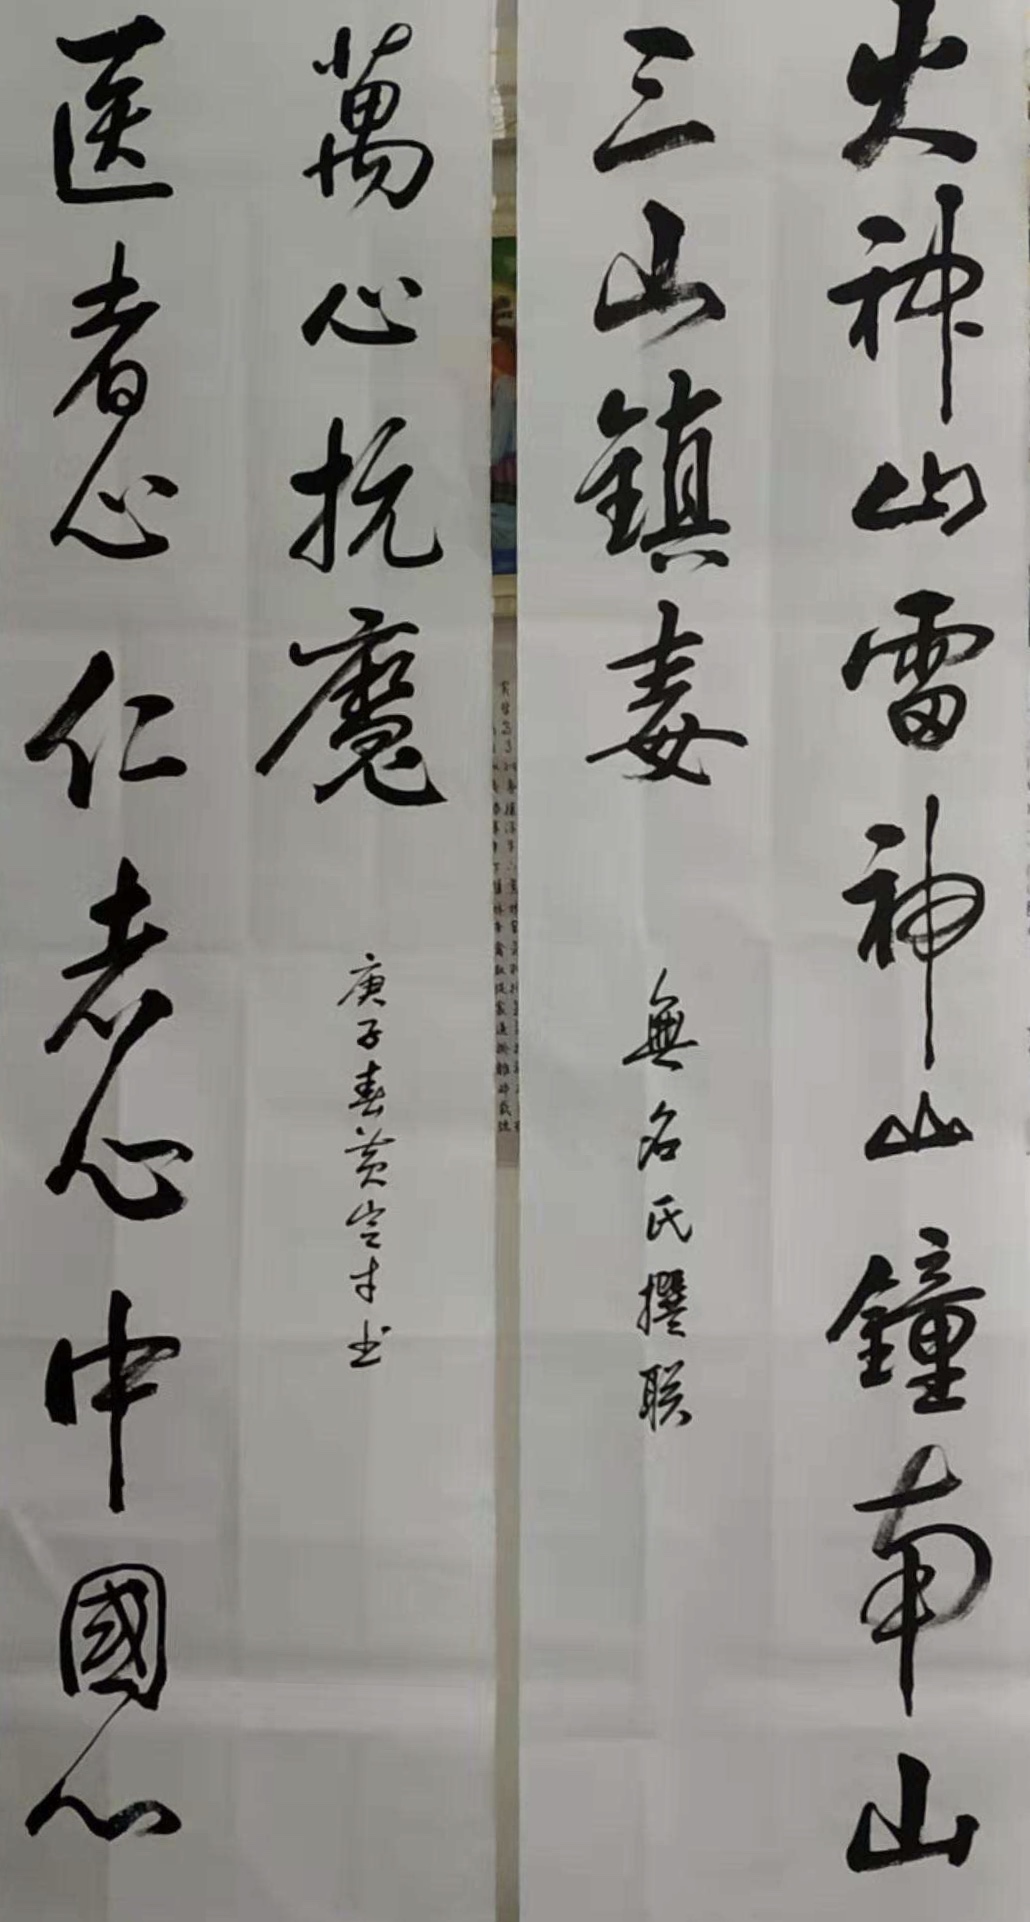 火神山雷神山鐘南山
三山鎮毒
無名氏撰联
医者心仁者心中國心
萬心抗魔
庚子春黄才书